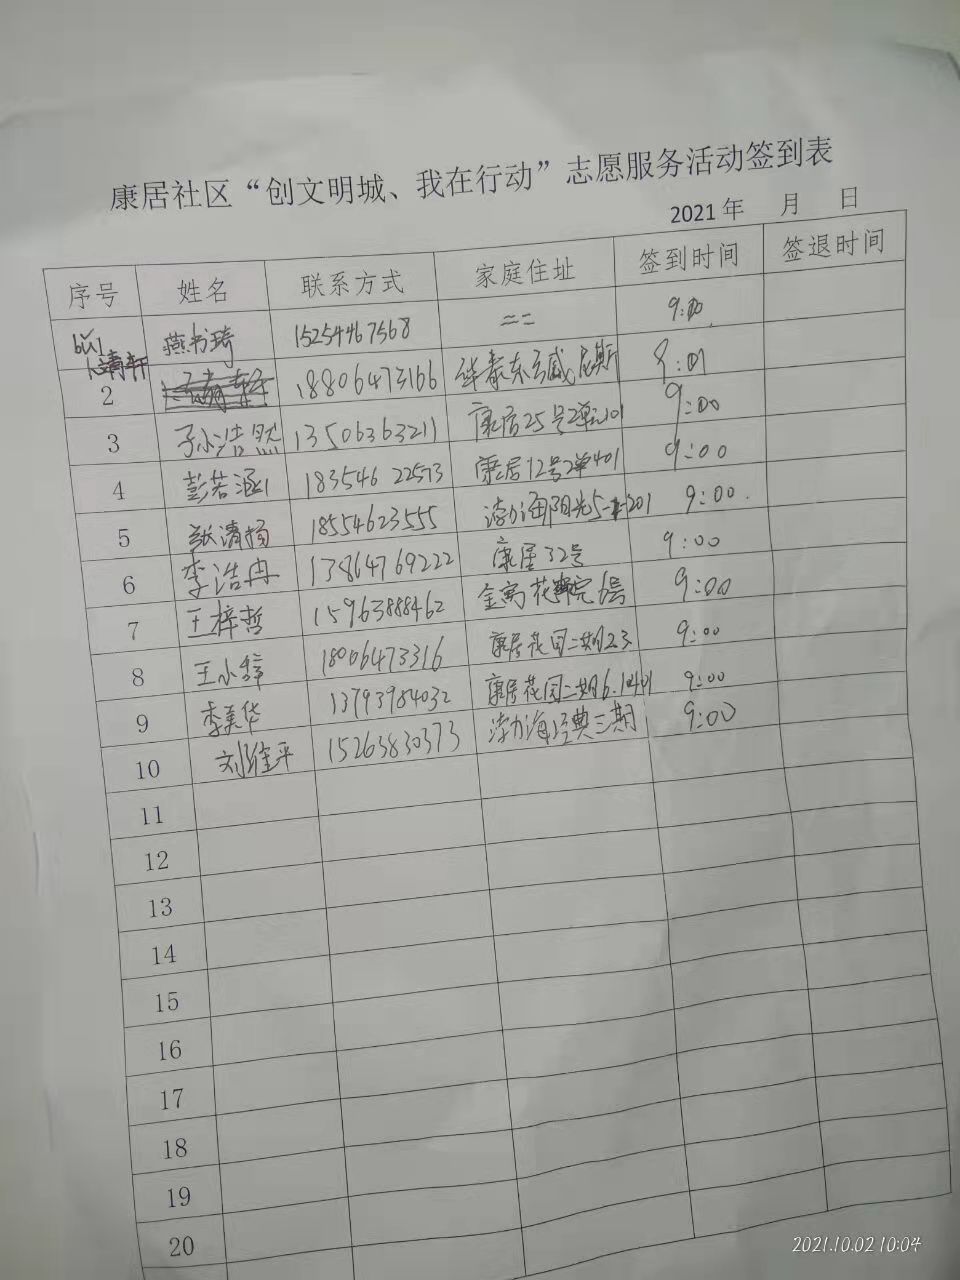 康居社区“创文明城、我在行动”志愿服务活动签到表
2021年 月 日
序号 姓名 联系方式 家庭住址 签到时间 签退时间
燕书琦 15254467568 二二 9:00
2 18806473166 华泰东方威尼斯 9:01
3 孙浩然 13506363211 康居25号2单元101 9:00
4 彭若涵 18354622573 康居12号2单401 9:00
5 张清杨 18554623555 渤海阳光5-1-201 9:00
6 李浩冉 13864769222 康居32号 9:00
7 王梓哲 15963888462 金寓花园6层 9:00
8 王小梓 18006473316 康居花园二期23 9:00
9 李美华 13793984032 康居花园二期6.1401 9:00
10 刘维平 15263830373 渤海经典三期 9:00
11
12
13
14
15
16
17
18
19
20
2021.10.02 10:04